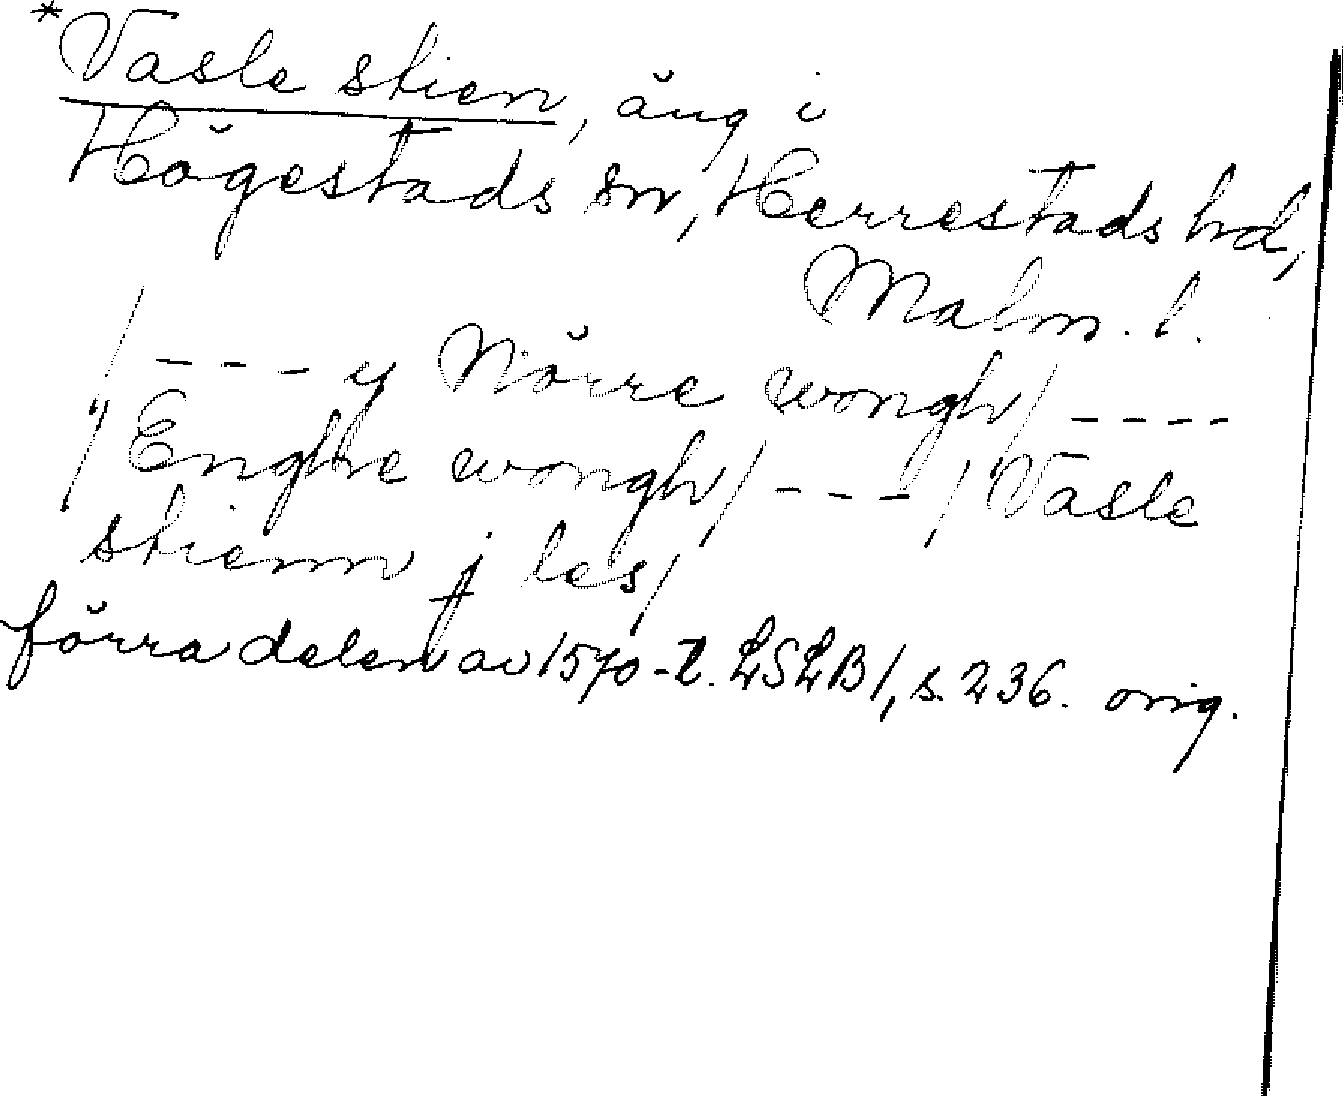 *Vasle stien, äng i
Högestads sn, Herrestads hd,
Malm. l.
/ - - - y Nörre wongh / - - - -
y / Enghe wongh / - - - / Vasle
stienn j les /
förra delen av 1570-t. LSLB 1, s. 236. orig.